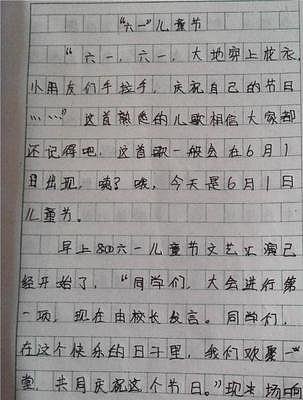 “六一”儿童节
“六一，六一，大地穿上花衣，
小朋友们手拉手，庆祝自己的节日
……”这首熟悉的儿歌相信大家都
还记得吧，这首歌一般会在6月1
日出现，咦？哦，今天是6月1日
儿童节。
早上800六一儿童节文艺汇演已
经开始了，“同学们，大会进行第
一项，现在由校长发言。同学们，
在这个快乐的日子里，我们欢聚一
堂，共同庆祝这个节日。”现场响